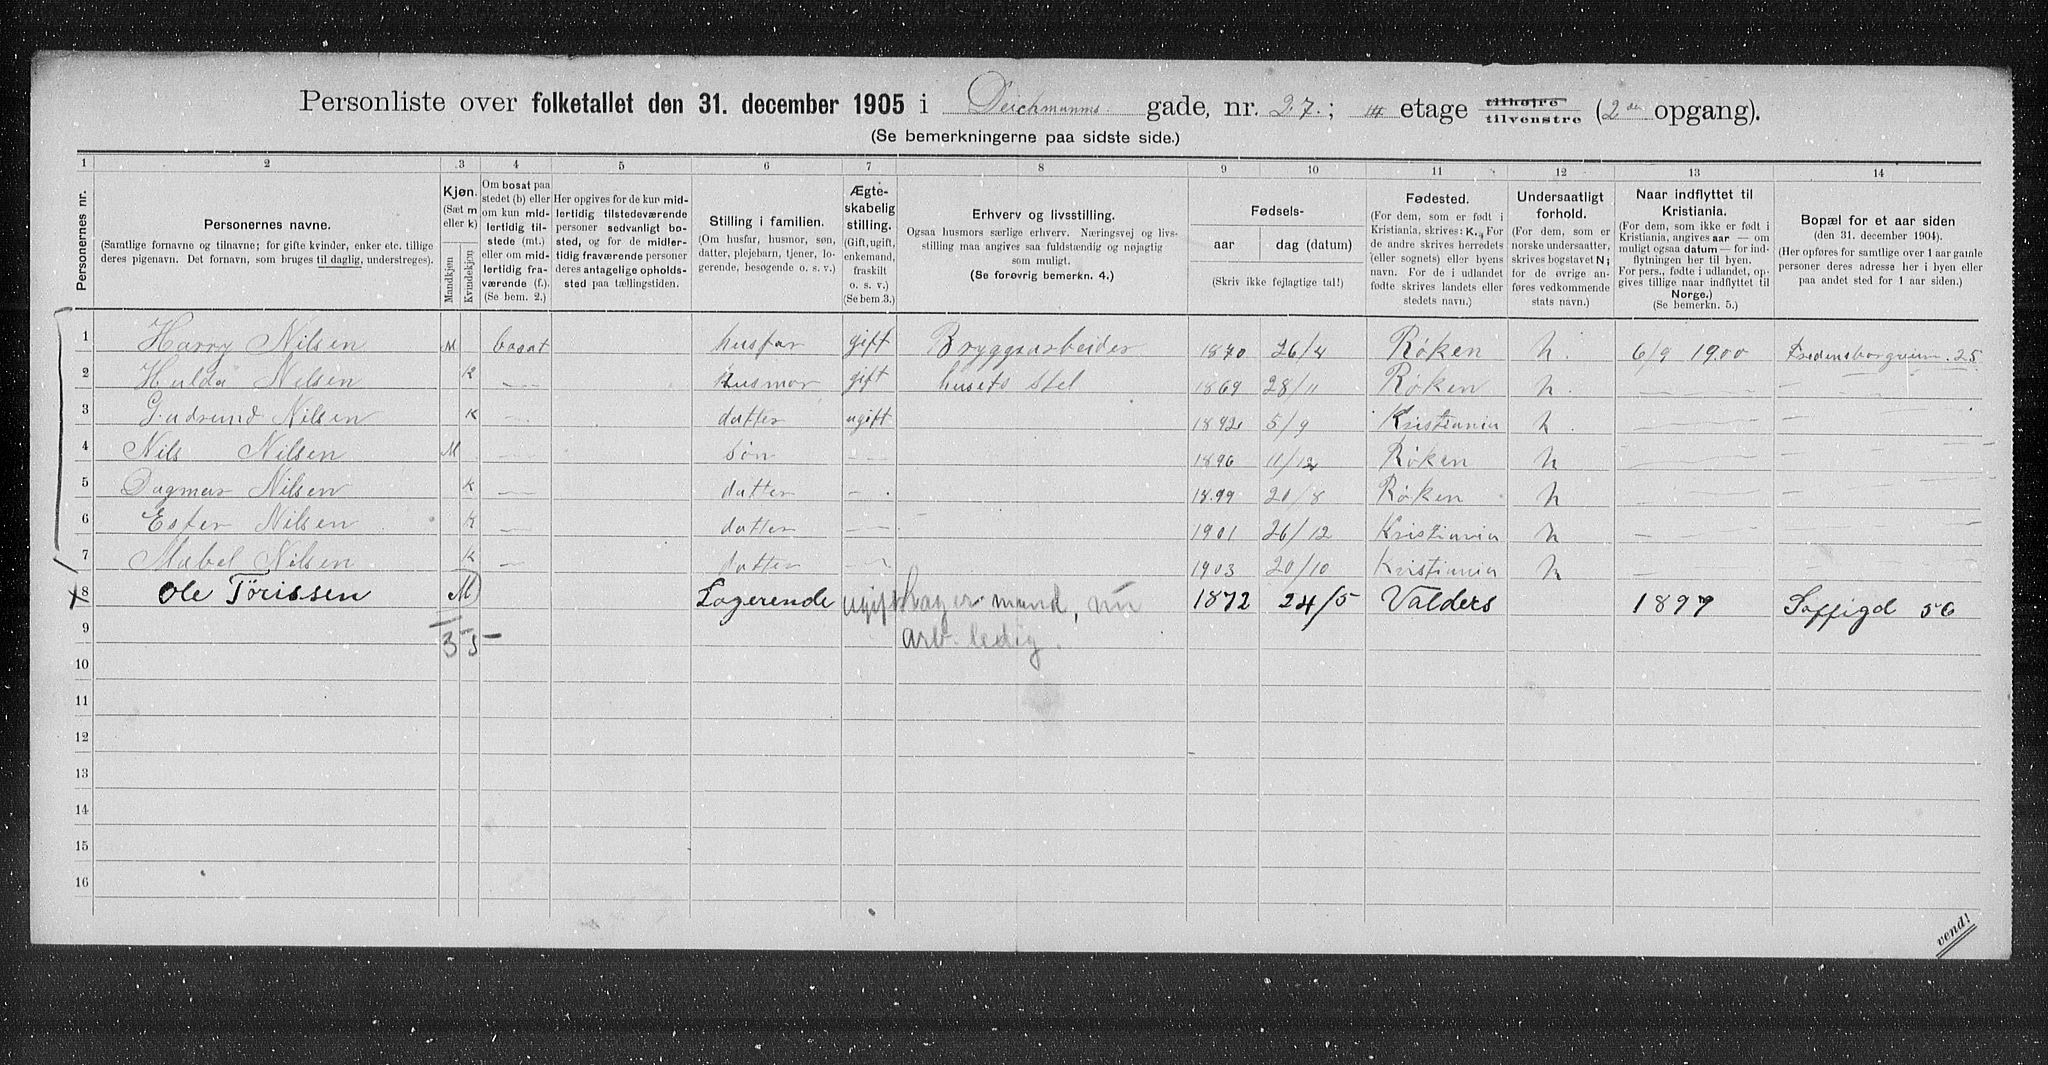 Personliste over folketallet den 31. december 1905 i Deichmanns gade, nr. 27.; III etage tilhøjre tilvenstre (2den opgang).
(Se bemerkningerne paa sidste side.)
1 2 3 4 5 6 7 8 9 10 11 12 13 14
Personernes nr.
Personernes navne.
(Samtlige fornavne og tilnavne; for gifte kvinder, enker etc. tillige
deres pigenavn. Det fornavn, som bruges til daglig, understreges).
Kjøn.
(Sæt m
eller k)
Mandkjøn
Kvindekjøn
Om bosat paa
stedet (b) eller
om kun mid-
lertidig til-
stede (mt.)
eller om mid-
lertidig fra-
værende (f.).
(Se bem. 2.)
Her opgives for de kun mid-
lertidig tilstedeværende
personer sedsvanligt bo-
sted, og for de midler-
tidig fraværende personer
deres antagelige opholds-
sted paa tællingstiden.
Stilling i familien.
(Om husfar, husmor, søn,
datter, plejebarn, tjener, lo-
gerende, besøgende o. s. v.)
Ægte-
skabelig
stilling.
(Gift, ugift,
enkemand,
fraskilt
o. s. v.)
(Se bem. 3.)
Erhverv og livsstilling.
Ogsaa husmors særlige erhverv. Næringsvej og livs-
stilling maa angives saa fuldstændig og nøjagtig
som muligt.
(Se forøvrig bemerkn. 4.)
Fødsels-
aar dag (datum)
(Skriv ikke fejlagtige tal!)
Fødested.
(For dem, som er født i
Kristiania, skrives: K. For
de andre skrives herredets
(eller sognets) eller byens
navn. For de i udlandet
fødte skrives landets eller
stedets navn.)
Undersaatligt
forhold.
(For dem, som er
norske undersaatter,
skrives bogstavet N;
for de øvrige an-
føres vedkommende
stats navn.)
Naar indflyttet til
Kristiania.
(For dem, som ikke er født i
Kristiania, angives aar — om
muligt ogsaa datum — for ind-
flytningen her til byen.
For pers., fødte i udlandet, op-
gives tillige naar indflyttet til
Norge.)
(Se bemerkn. 5.)
Bopæl for et aar siden
(den 31. december 1904).
(Her opføres for samtlige over 1 aar gamle
personer deres adresse her i byen eller
paa andet sted for 1 aar siden.)
1 Harry Nilsen M bosat husfar gift Bryggearbeider 1870 26/4 Røken n. 6/9 1900 Fredensborgveien. 25
2 Hulda Nilsen K husmor gift husets stel 1869 28/11 Røken n.
3 Gudrund Nilsen K datter ugift 1892 5/9 Kristiania n.
4 Nils Nilsen M søn 1896 11/12 Røken n
5 Dagmar Nilsen K datter 1899 20/8 Røken n
6 Ester Nilsen K datter 1901 26/12 Kristiania n
7 Mabel Nilsen K datter 1903 20/10 Kristiania n
x 8 Ole Törissen M Logerende ugift Lagermand, nu 1872 24/5 Valders 1897 Soffigd 56
9 3 5 arb. ledig.
10
11
12
13
14
15
16
vend!